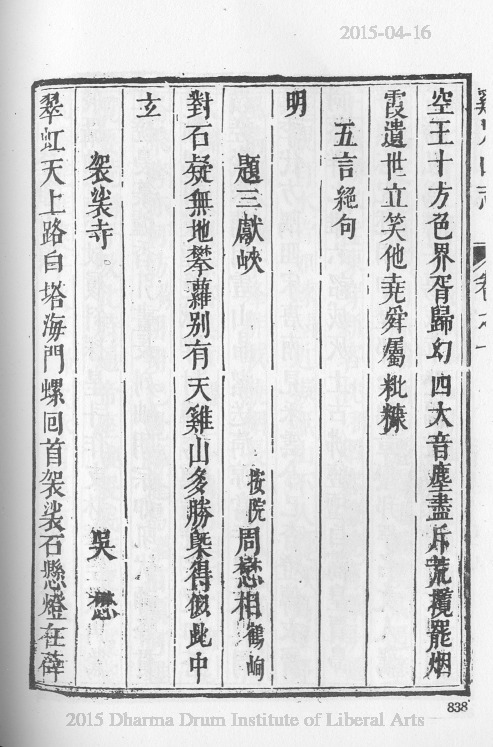 2015-04-16
雞足山志 卷之十
空王十方色界胥歸幻四大音塵盡斥荒攬罷烟
霞遺世立笑他堯舜屬粃糠
五言絕句
明
題三獻峽 按院周懋相鶴峋
對石疑無地攀蘿別有天雞山多勝槩得似此中
玄
袈裟寺 吳懋
翠虹天上路白塔海門螺回首袈裟石懸燈在薜
838
2015 Dharma Drum Institute of Liberal Arts